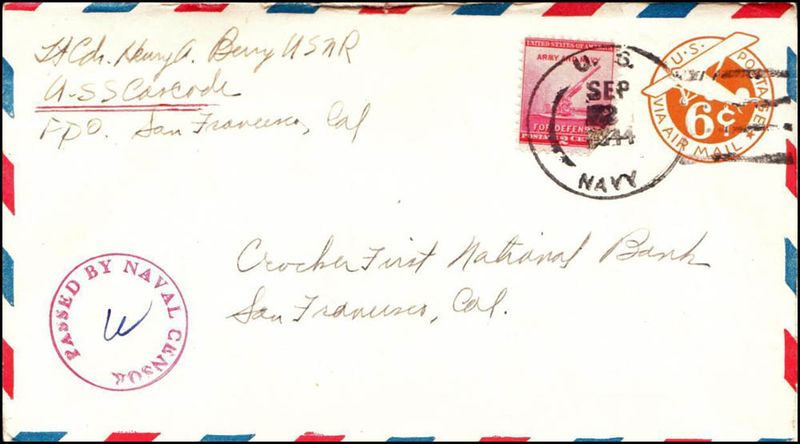 Lt Cdr. Henry A. Berry USNR
USS Cascade
F.P.O. San Francisco, Cal
UNITED STATES OF AMERICA
ARMY AND NAVY
FOR DEFENSE
POSTAGE 2 CENTS
U. S.
SEP
2
1944
NAVY
U.S. POSTAGE
6¢
VIA AIR MAIL
Crocker First National Bank
San Francisco, Cal.
PASSED BY NAVAL CENSOR
W